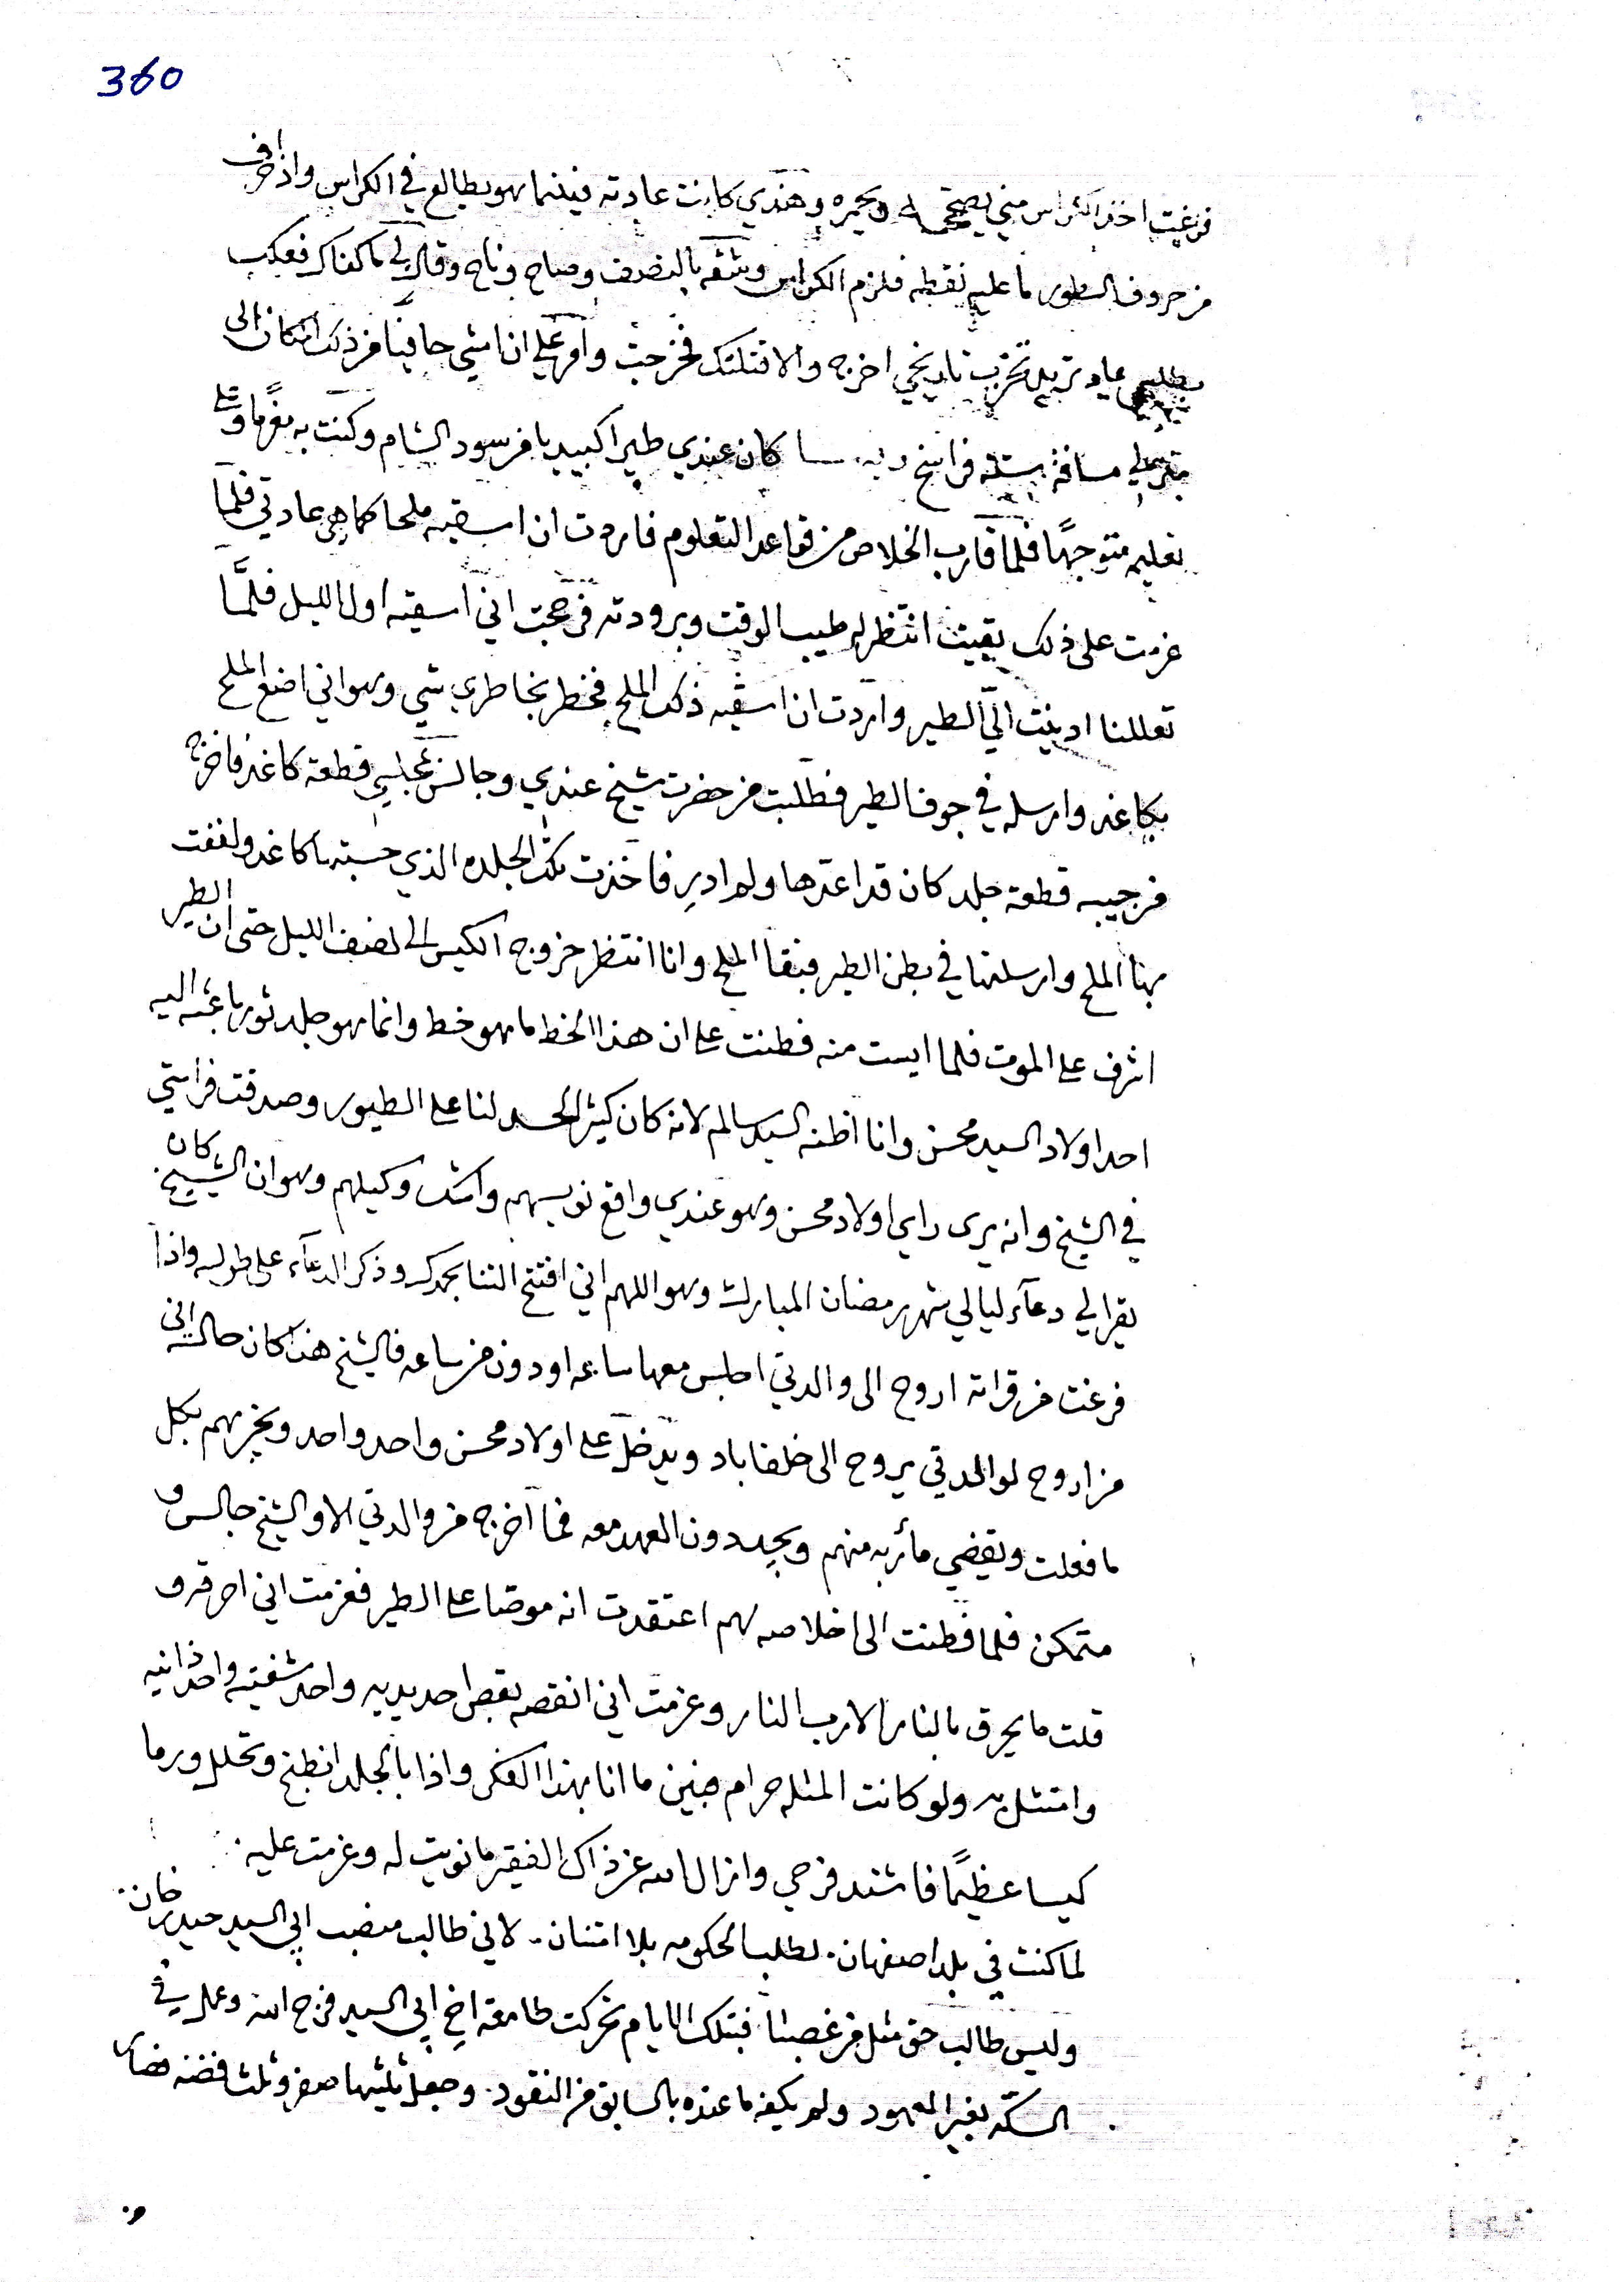 360
فرغت اخذ الكراس مني يصححه ويحمره وهذي كانت عادته فبينما هو يطالع في الكراس واذا حرف
من حروف السطور ما عليه نقطه فلزم الكراس وشقه بالنصف وصاح وناح وقال لي ما كفاك فعلك
عادتي تخرب تاريخي اخرج والا قتلتك فخرجت وامر علي ان امشي حافيا من ذلك المكان الى
مسافة ستة فراسخ كان عندي طيرا كبيديا من سود الشام وكنت به مغرما وعلى
تعليمه متوجها فلما قارب الخلاص من قواعد التعلوم فاردت ان اسقيه ملحا كما هي عادتي فلما
عزمت على ذلك بقيت انتظر له طيب الوقت وبرودته فرجحت اني اسقيه اول الليل فلما
تعللنا ادنيت الي الطير واردت ان اسقيه ذلك الملح فخطر بخاطري شي وهو اني اضع الملح
بكاغد وارسله في جوف الطير فطلبت من حضرت شيخ عندي وجالس بمجلسي قطعة كاغد فاخرج
من جيبه قطعة جلد كان قد اعدها ولم ادر فاخذت تلك الجلده الذي حسبتها كاغد ولففت
بها الملح وارسلتها في بطن الطير فبقا الملح وانا انتظر خروج الكيس الى نصف الليل حتى ان الطير
اشرف على الموت فلما ايست منه فطنت على ان هذا الخط ما هو خط وانما هو جلد ثور باعثه اليه
احد اولاد السيد محسن وانا اظنه السيد سالم لانه كان كثير الحسد لنا على الطيور وصدقت فراستي
في الشيخ وانه يرى راي اولاد محسن وهو عندي واقع نويسهم وامثك وكيلهم وهو ان الشيخ كان
يقرا لي دعآء ليالي شهر رمضان المبارك وهو اللهم اني افتتح الثنا بحمدك وذكر الدعآء على طوله واذا
فرغت من قراته اروح الى والدتي اجلس معها ساعه او دون من ساعه فالشيخ هذا كان حالته اني
من اروح لوالدتي يروح الى خلفاباد ويدخل على اولاد محسن واحد واحد ويخبرهم بكل
ما فعلت ويقضي مأربه منهم ويجددون العهد معه فما اخرج من والدتي الا والشيخ جالس و
متمكن فلما فطنت الى اخلاصه لهم اعتقدت انه موصا على الطير فعزمت اني احرقه و
قلت ما يحرق بالنار الا رب النار وعزمت اني انقصه بقص احد يديه واحد شفتيه واحد اذانيه
وامتثل به ولو كانت المثله حرام فبين ما انا بهذا الفكر واذا بالجلد انطبخ وتحلل ورما
كيسا عظيما فاشتد فرحي وازال الله عن ذاك الفقير ما نويت له وعزمت عليه
لما كنت في بلد اصفهان. لطلب الحكومه بلا امتنان. لاني طالب منصب ابي السيد حيدر خان.
وليس طالب حق مثل من غصبنا. فبتلك الايام تحركت طامعة اخ ابي السيد فرج الله وعمل في
السكه بغير المعهود ولم يكفه ما عنده بالسابق من النقود. وجعل ثلثيها صفر وثلث فضه فضاى